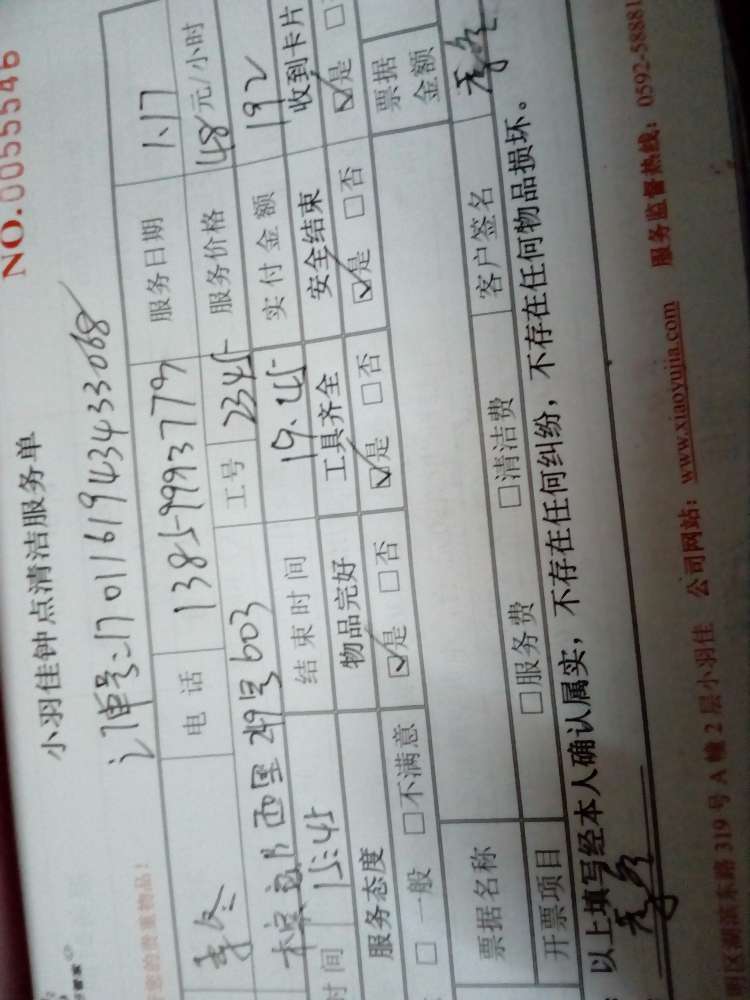 NO.0055546
小羽佳钟点清洁服务单
订单号:17011619434433068
意的贵重物品!
李冬 电话 服务日期 1.17
西里249号603 工号 2345 服务价格 48元/小时
时间 15:45 结束时间 19.45 实付金额 192
服务态度 物品完好 工具齐全 安全结束 收到卡片
□一般 □不满意 ☑是 □否 ☑是 □否 ☑是 □否 ☑是
票据名称 票据金额
开票项目 □服务费 □清洁费 客户签名 李冬
以上填写经本人确认属实,不存在任何纠纷,不存在任何物品损坏。
李冬
明区湖滨东路319号A幢2层小羽佳 公司网站:www.xiaoyujia.com 服务监督热线:0592-58881